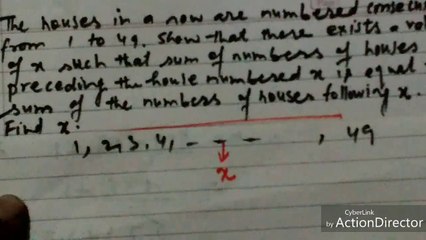 The houses in a now are numbered consecu
from 1 to 49. Show that there exists a val
of x such that sum of numbers of houses
preceding the house numbered x is equal
sum of the numbers of houses following x.
Find x.
1, 2, 3, 4, - - - , 49
x
CyberLink
by ActionDirector